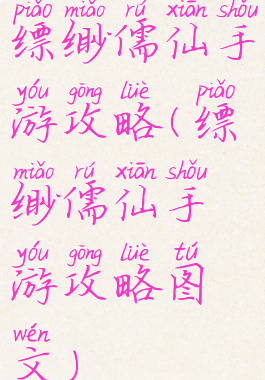 piǎo miǎo rú xiān shǒu
缥缈儒仙手
yóu gōng lüè piǎo
游攻略(缥
miǎo rú xiān shǒu
缈儒仙手
yóu gōng lüè tú
游攻略图
wén
文)